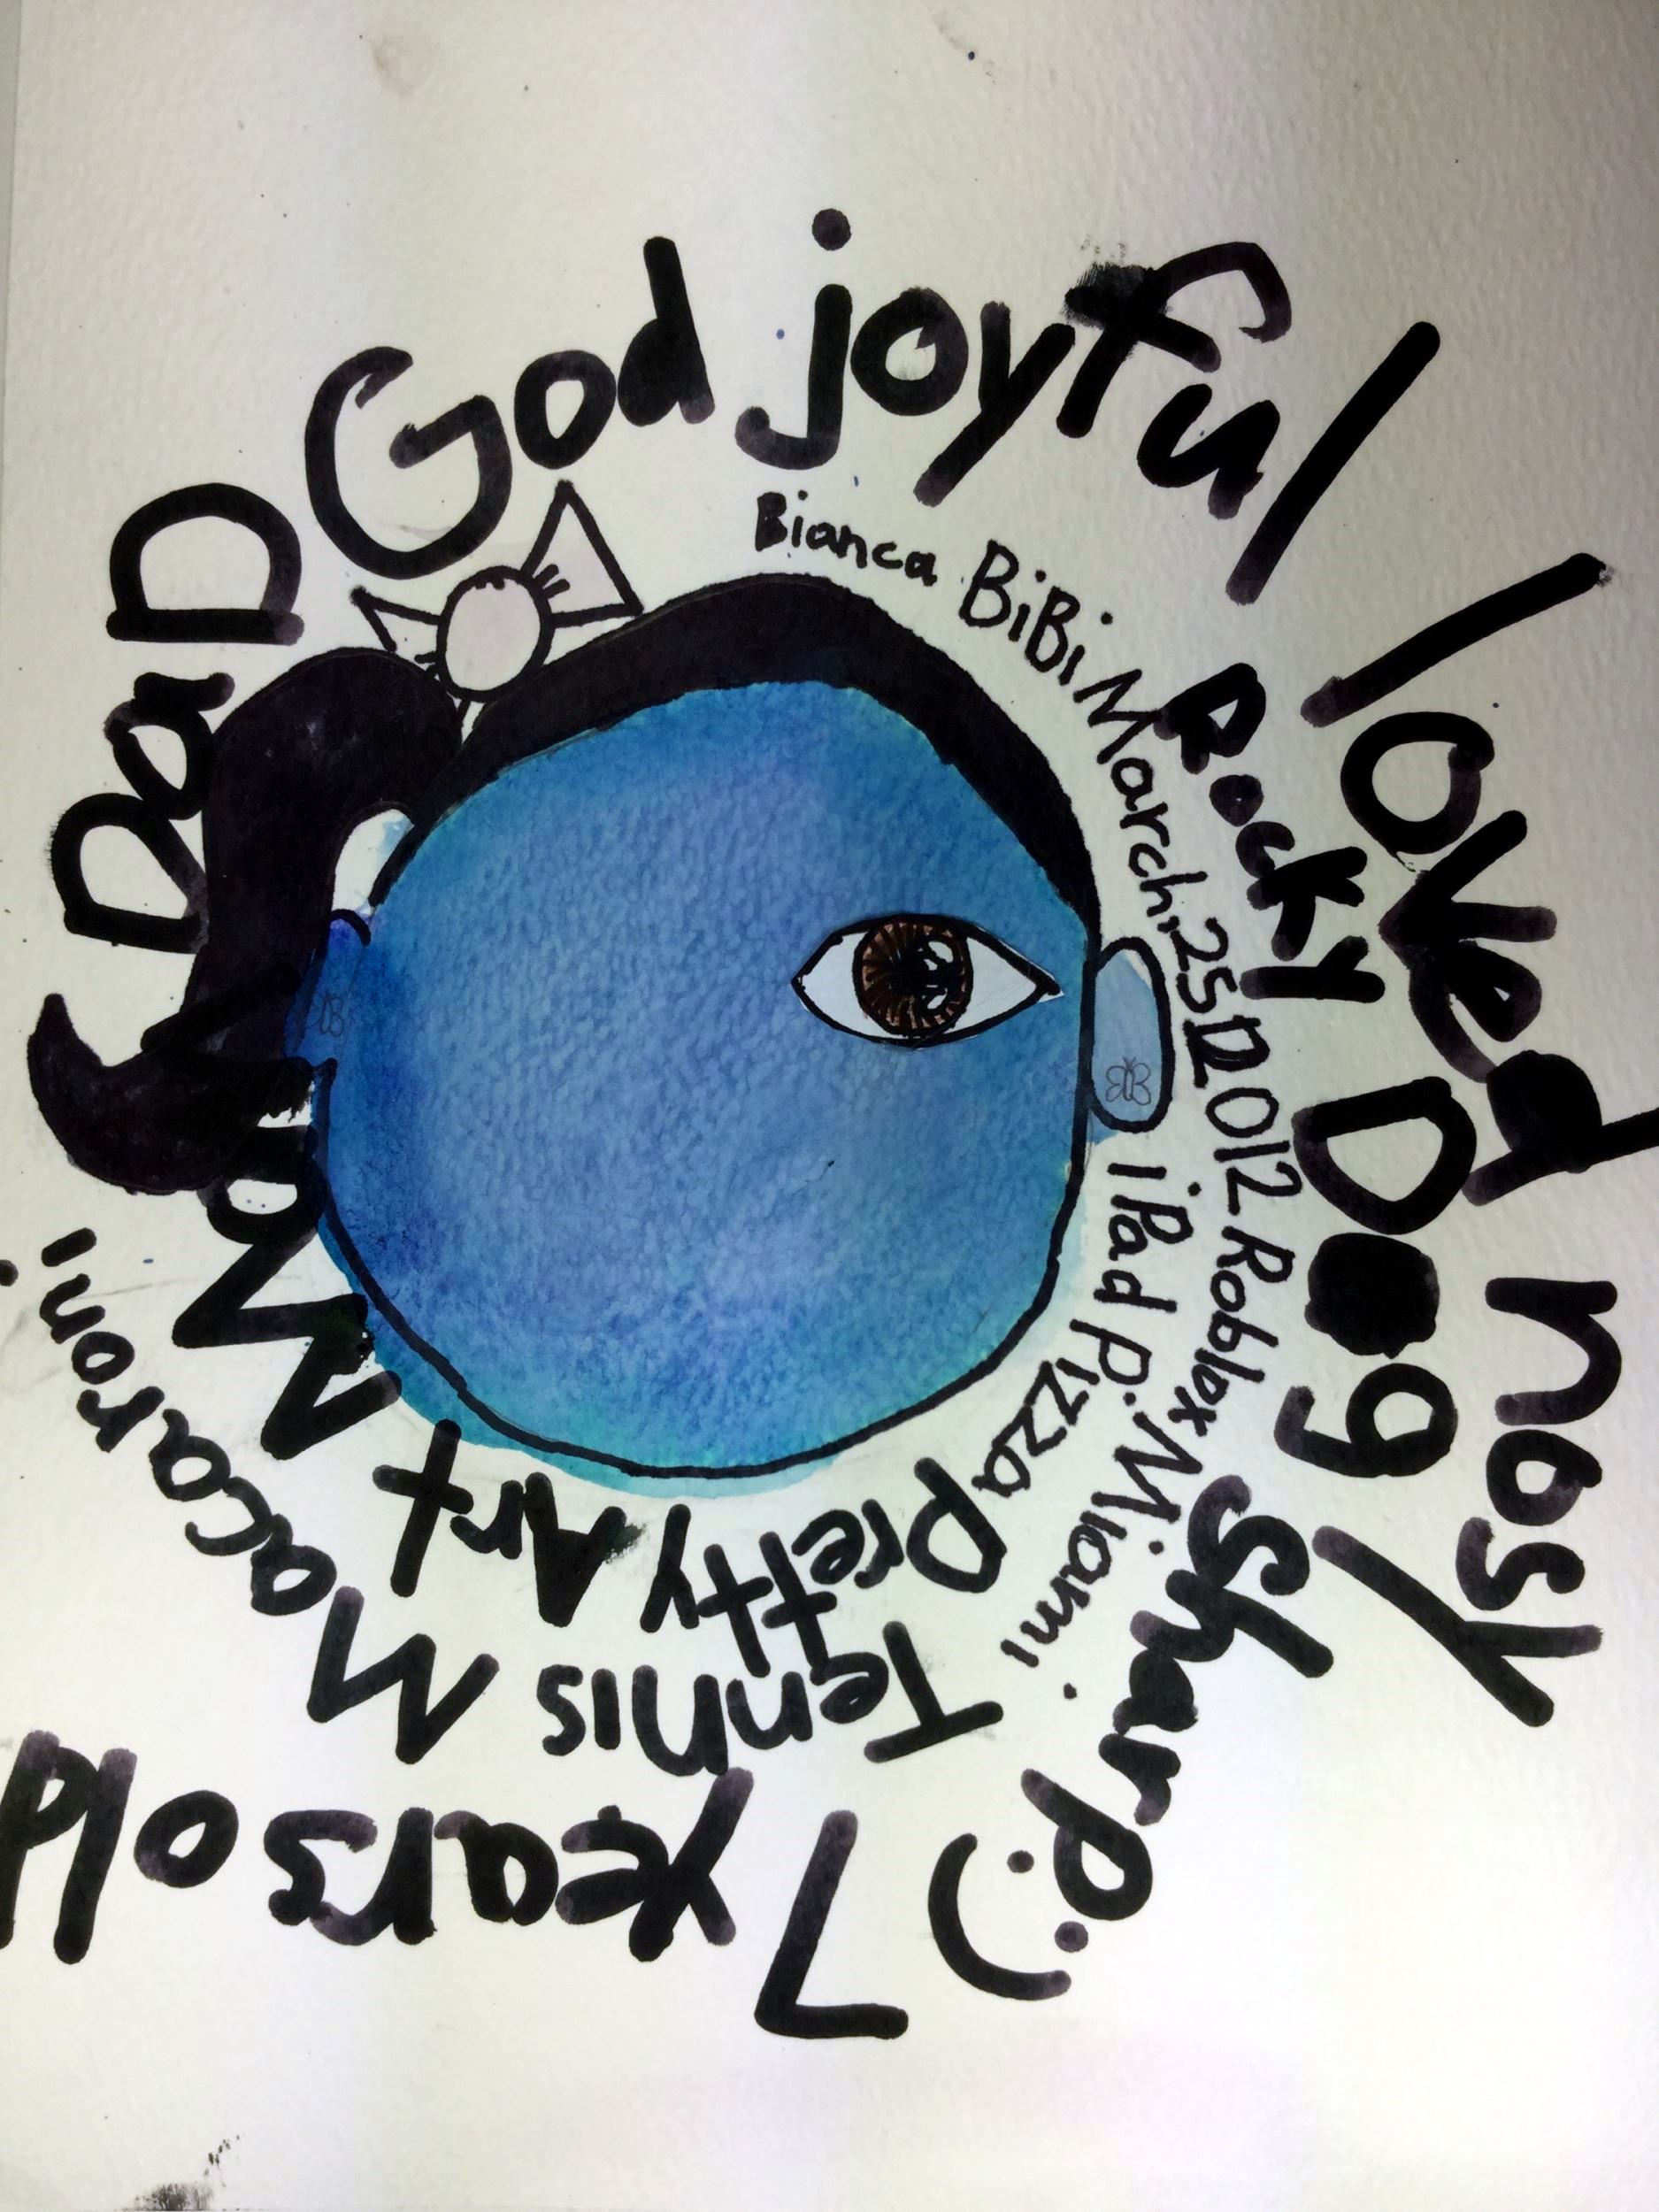 DaD God joyful loved nosy
Bianca BiBi March,25 2012 Roblox Miami.
Rocky Dog sharp:)
iPad Pizza pretty Art Mom
Tennis Macaroni
7 years old